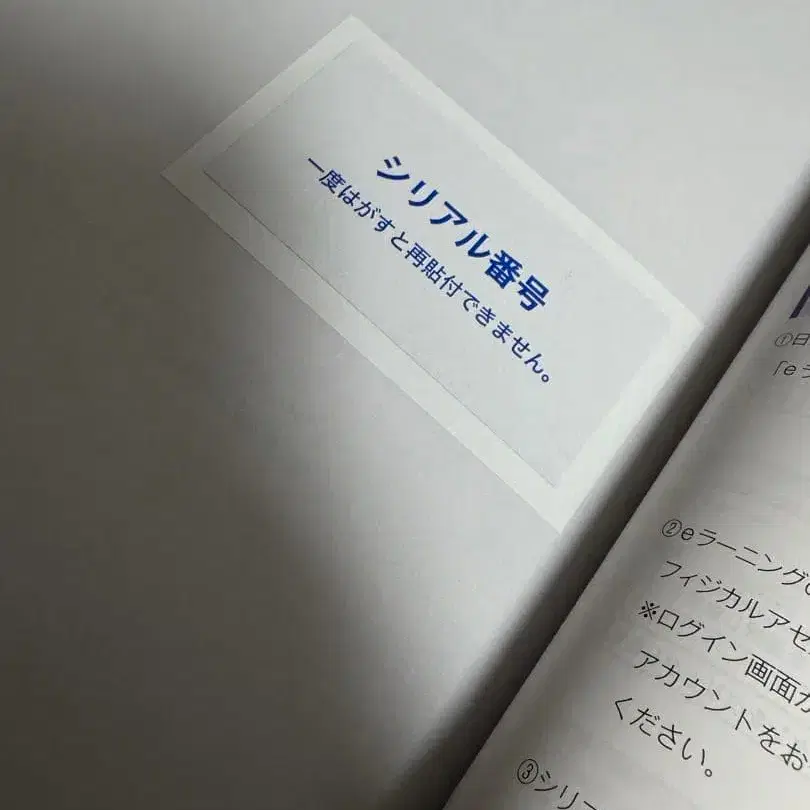 シリアル番号
一度はがすと再貼付できません。
①日
「eラ
②eラーニング
フィジカルアセ
※ログイン画面か
アカウントをお
ください。
③シリ